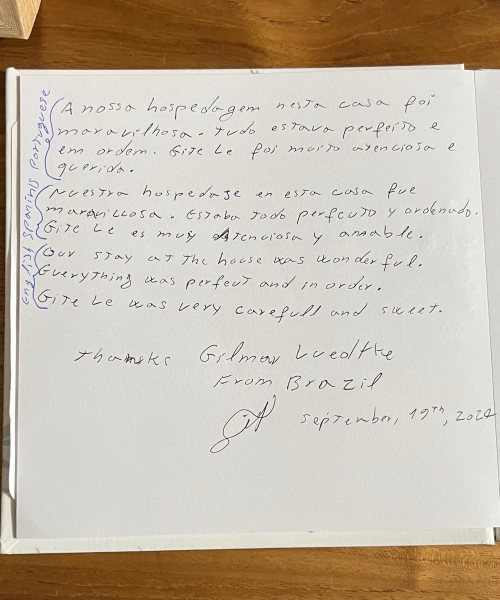 Portuguese
A nossa hospedagem nesta casa foi
maravilhosa. tudo estava perfeito e
em ordem. Gite Le foi muito atenciosa e
querida.
Spaninis
Nuestra hospedage en esta casa fue
maravillosa. Estaba todo perfecto y ordenado.
Gite Le es muy Atenciosa y amable.
english
Our stay at the house was wonderful.
Everything was perfect and in order.
Gite Le was very carefull and sweet.
thanks Gilmar Luedtke
From Brazil
September, 19th, 2024